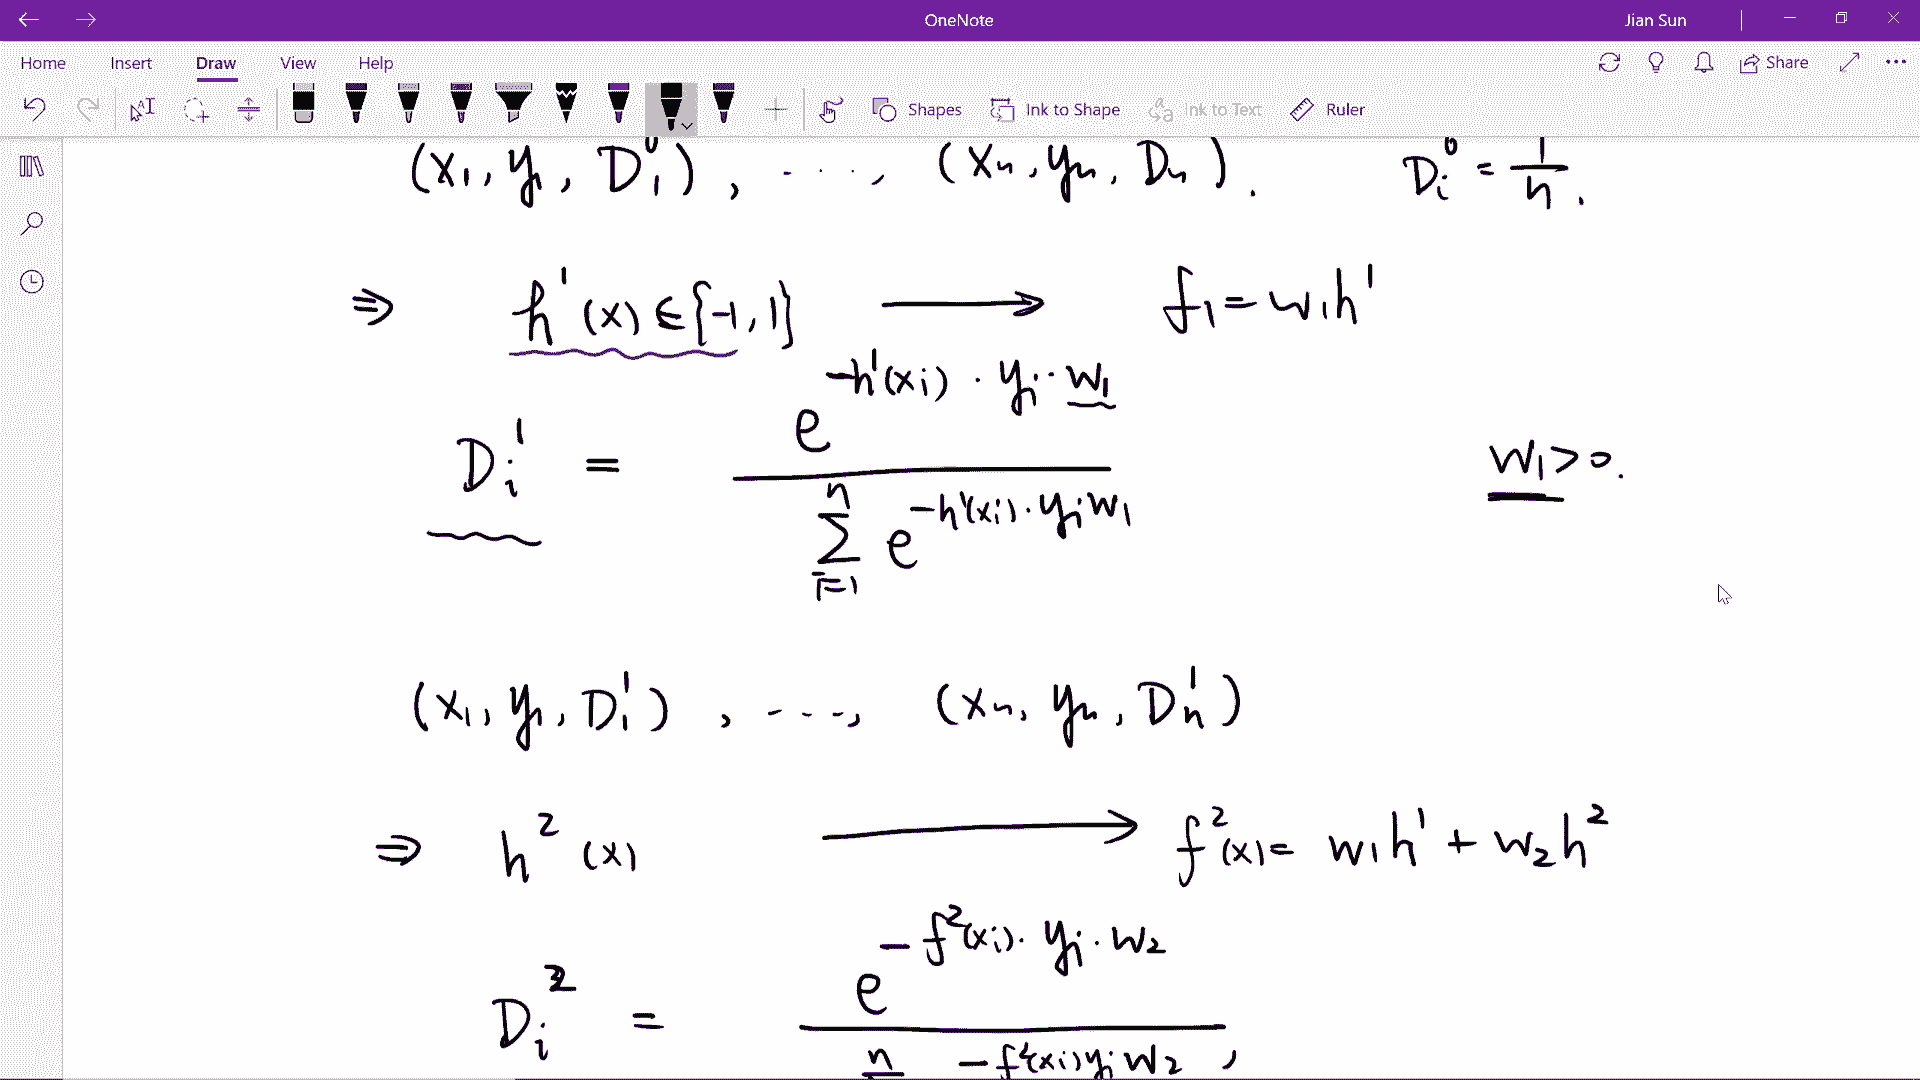 OneNote
Jian Sun
Home Insert Draw View Help
Share
Shapes Ink to Shape Ink to Text Ruler
(x₁, y₁, D₁⁰), ..., (xₙ, yₙ, Dₙ). Dᵢ⁰ = 1/n.
⇒ h¹(x) ∈ {-1, 1} ⟶ f₁ = w₁h¹
Dᵢ¹ = e^{-h¹(xᵢ)·yᵢ·w₁} / ∑_{i=1}^{n} e^{-h¹(xᵢ)·yᵢw₁} w₁>0.
(x₁, y₁, D₁¹), ..., (xₙ, yₙ, Dₙ¹)
⇒ h²(x) ⟶ f²(x) = w₁h¹ + w₂h²
Dᵢ² = e^{-f²(xᵢ)·yᵢ·w₂} / n -f²(xᵢ)yᵢw₂ ,